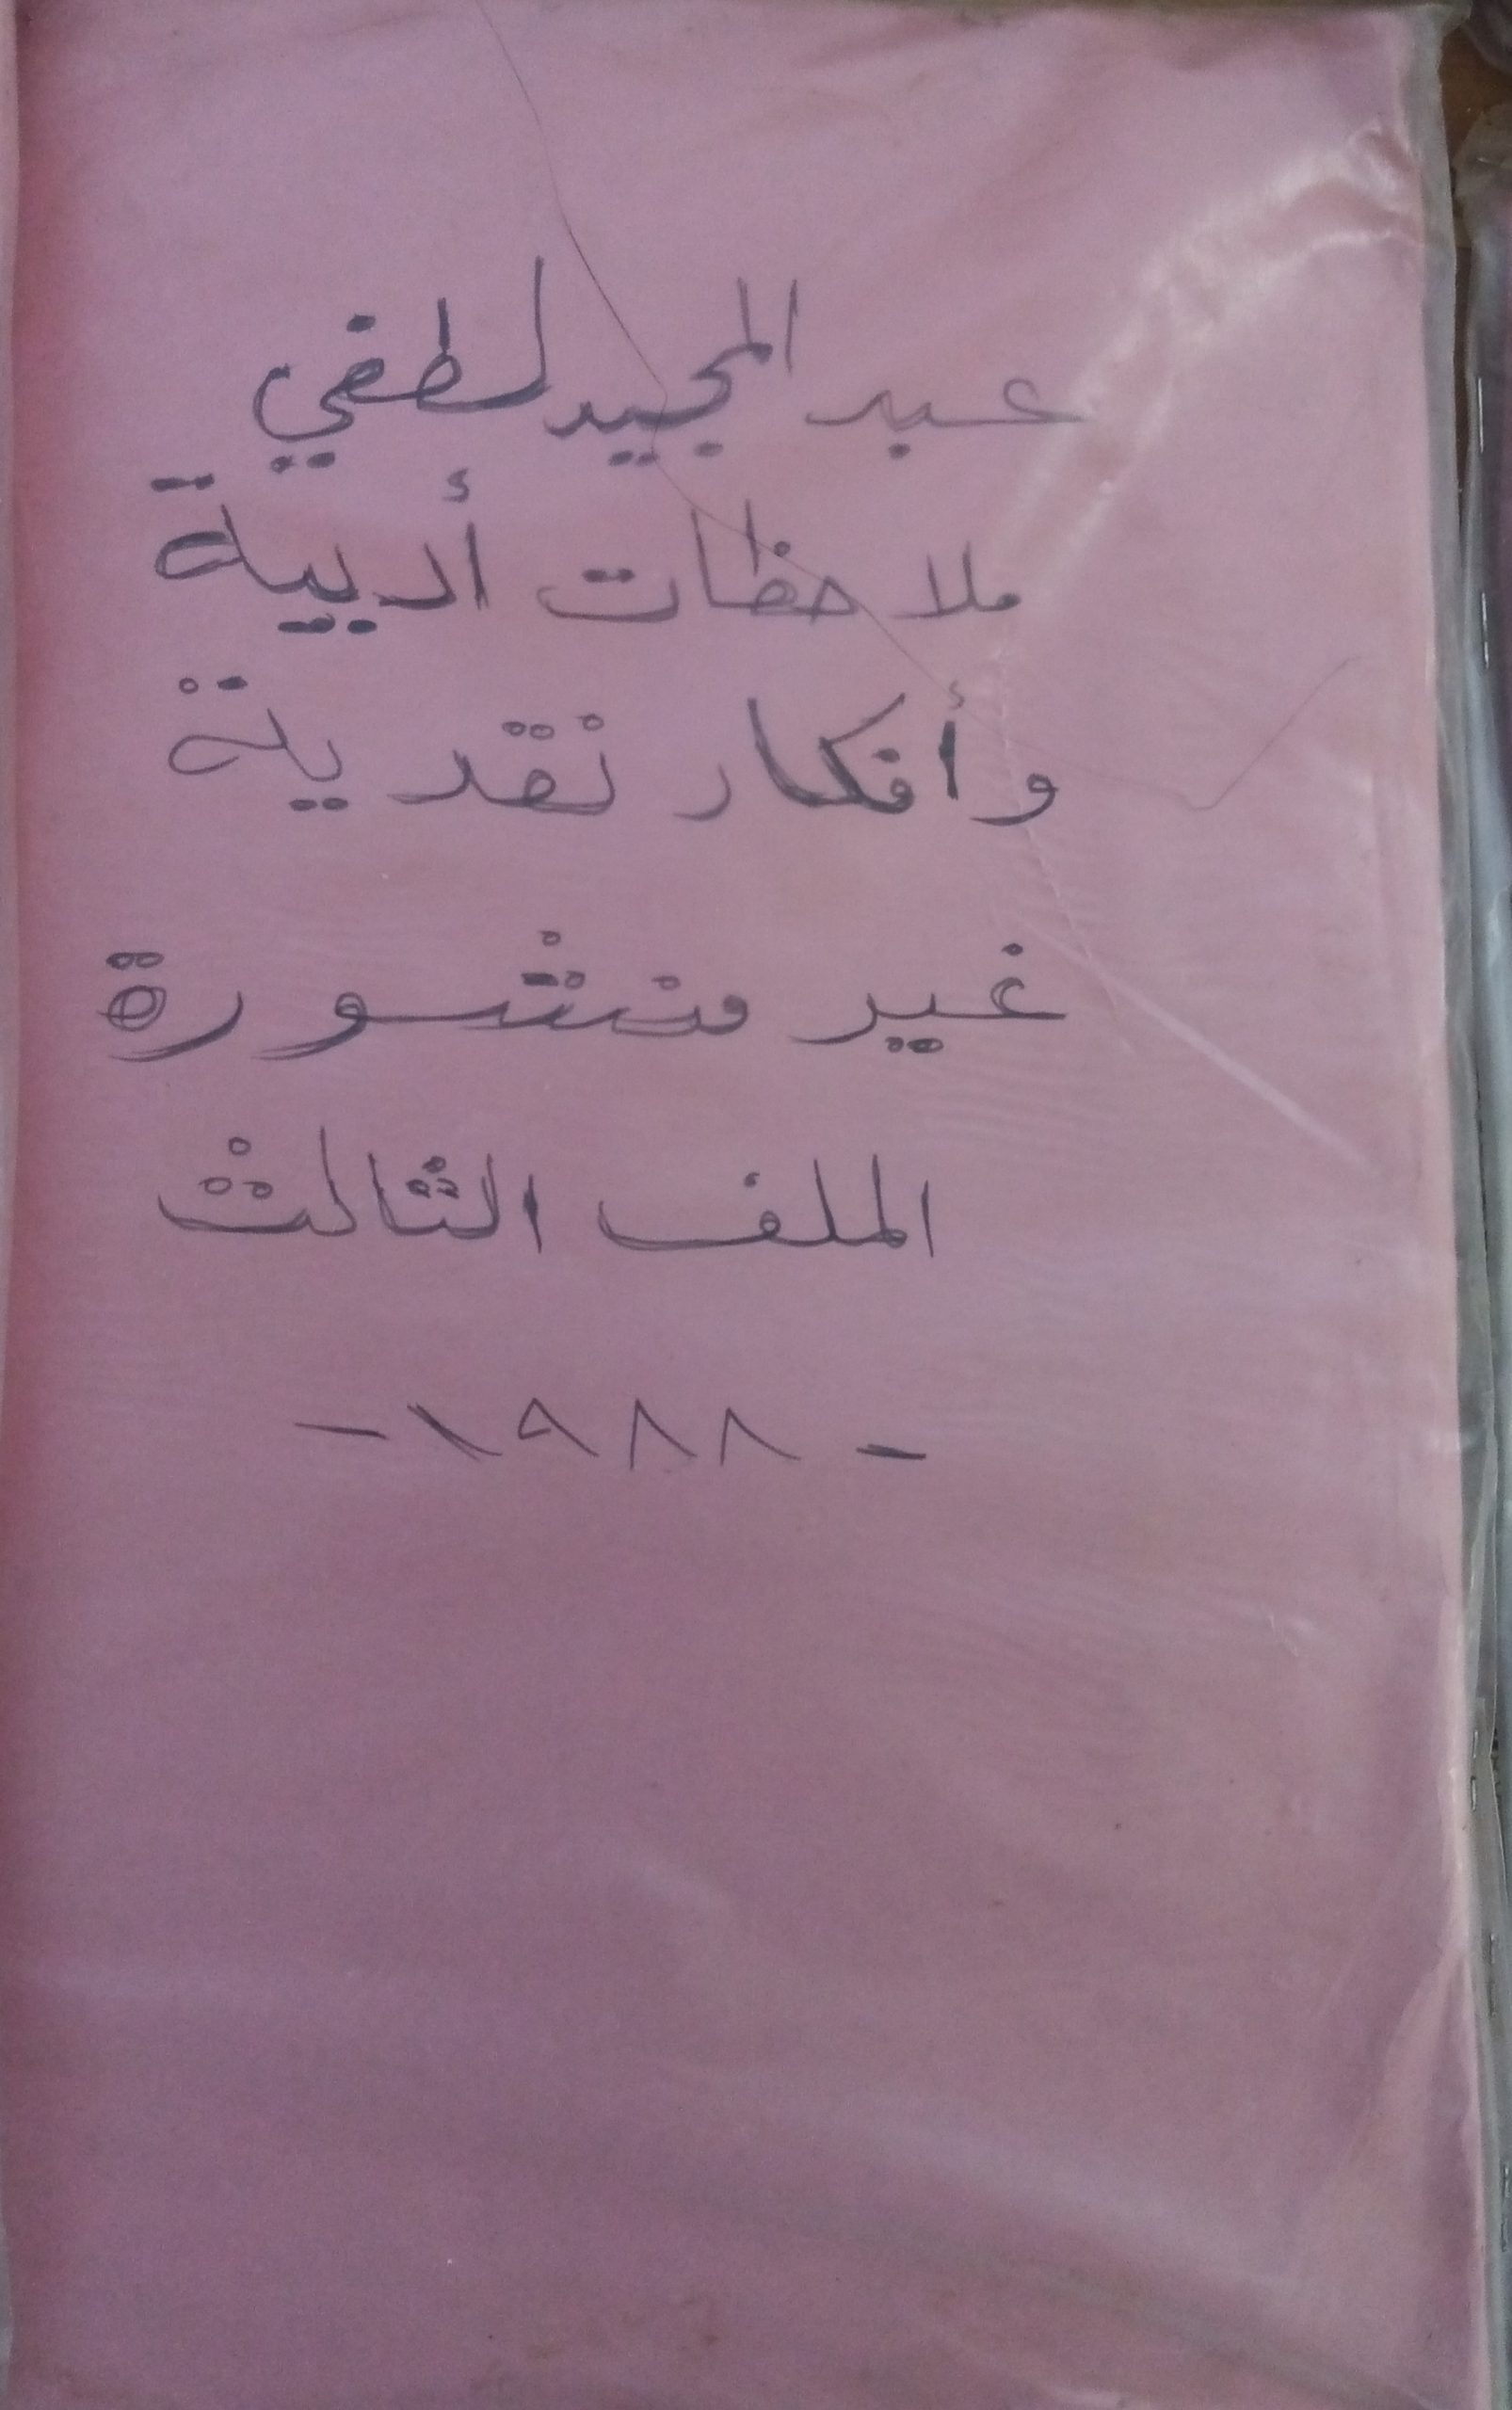 عبد المجيد لطفي
ملاحظات أدبية
وأفكار نقدية
غير منشورة
الملف الثالث
- ١٩٨٨ -